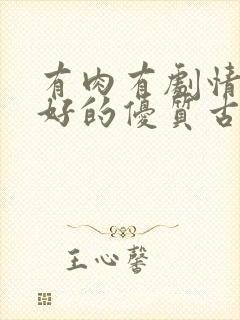 有肉有劇情
好的優質古
王心馨